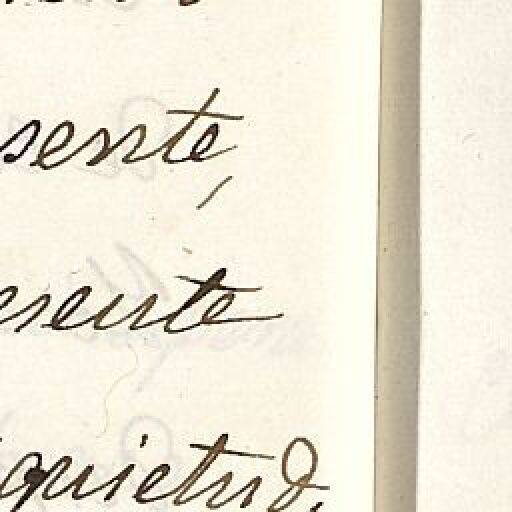 sente,
esente
quietud,